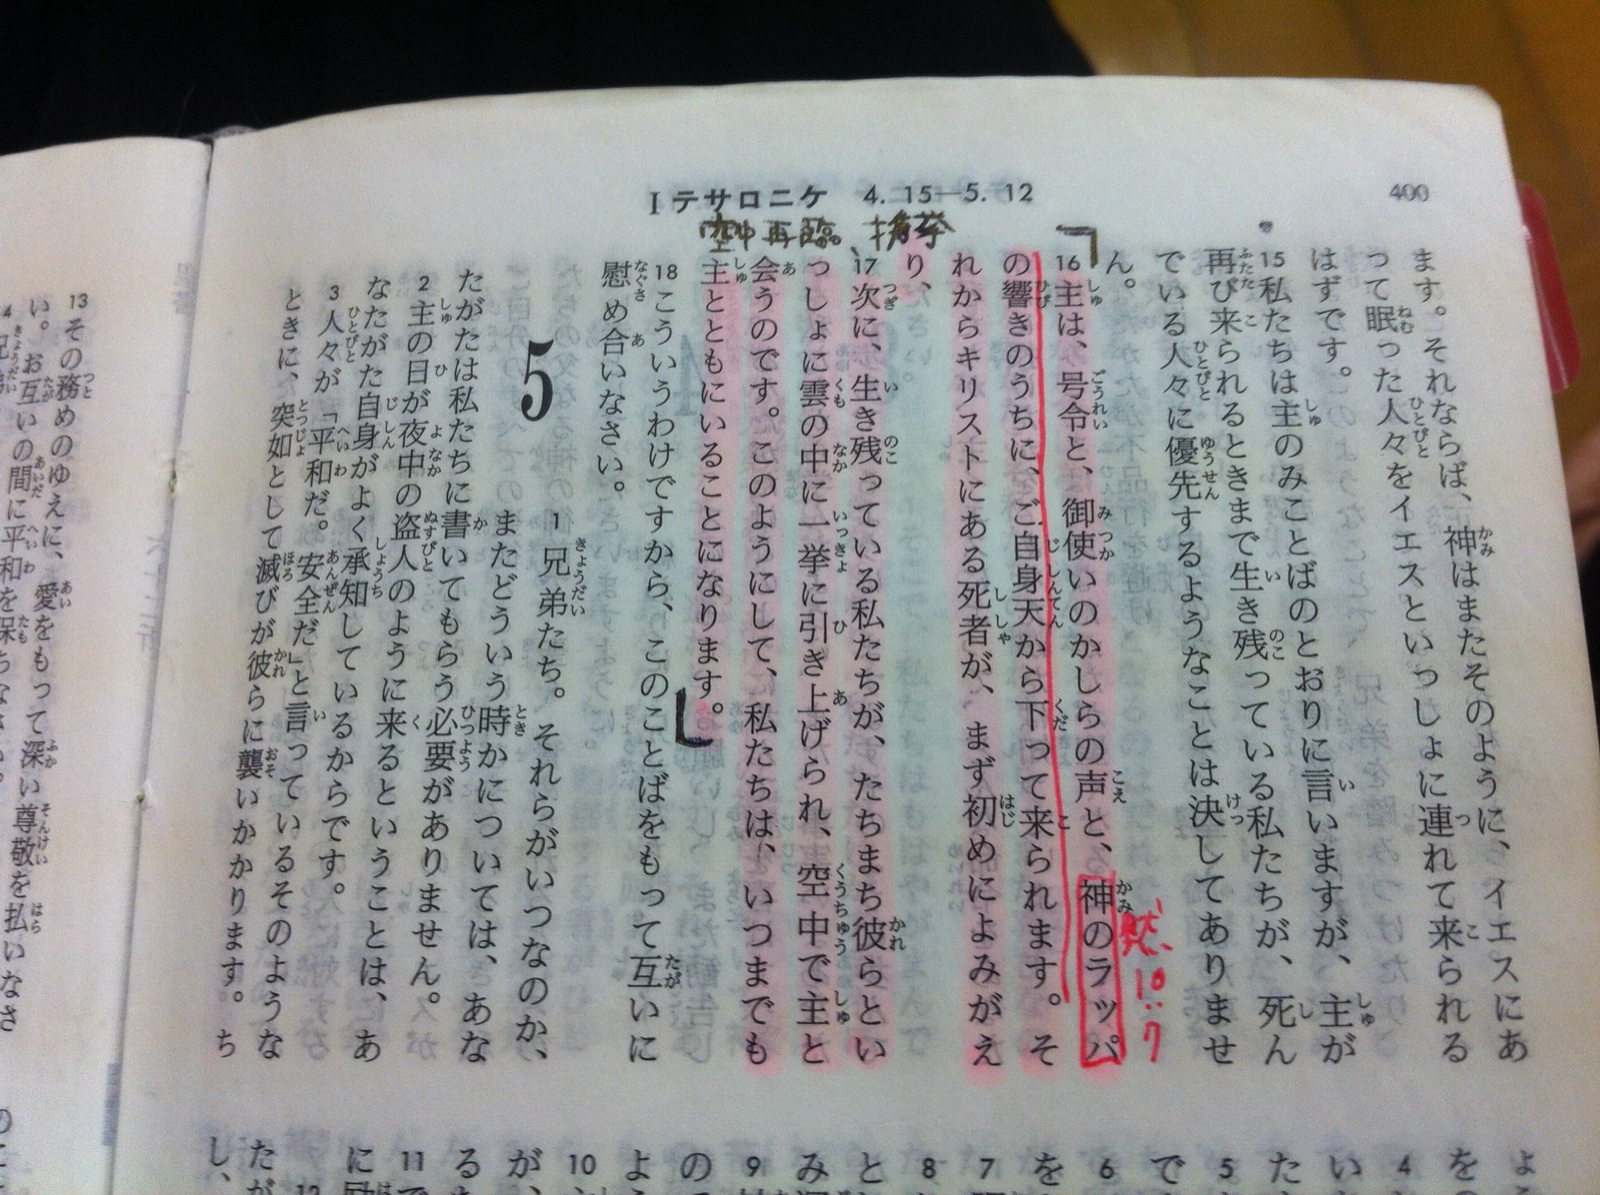 400
Ⅰテサロニケ 4. 15—5. 12
空中再臨、携挙
ます。それならば、神はまたそのように、イエスにあ
って眠った人々をイエスといっしょに連れて来られる
はずです。
15 私たちは主のみことばのとおりに言いますが、主が
再び来られるときまで生き残っている私たちが、死ん
でいる人々に優先するようなことは決してありませ
ん。
16 主は、号令と、御使いのかしらの声と、神のラッパ
黙、10:7
の響きのうちに、ご自身天から下って来られます。そ
れからキリストにある死者が、まず初めによみがえ
り、
17 次に、生き残っている私たちが、たちまち彼らとい
っしょに雲の中に一挙に引き上げられ、空中で主と
会うのです。このようにして、私たちは、いつまでも
主とともにいることになります。
18 こういうわけですから、このことばをもって互いに
慰め合いなさい。
5
1 兄弟たち。それらがいつなのか、
またどういう時かについては、あな
たがたは私たちに書いてもらう必要がありません。
2 主の日が夜中の盗人のように来るということは、あ
なたがた自身がよく承知しているからです。
3 人々が「平和だ。安全だ」と言っているそのような
ときに、突如として滅びが彼らに襲いかかります。ち
よ
を
4
い
た
5
で
6
を
7
8
と
み
9
の
よう
10
が、
る
11
に
12
たが
し、
13 その務めのゆえに、愛をもって深い尊敬を払いなさ
い。お互いの間に平和を保ちなさい。